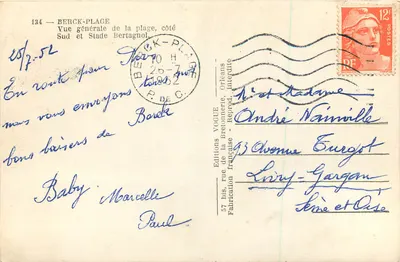 124 - BERCK-PLAGE
Vue générale de la plage, côté
Sud et Stade Bertagnol
25/7/52
En route pour
nous vous envoyons
bons baisers de Berck
Baby Marcelle
Paul
BERCK-PLAGE
10 H
25-7
1952
P. DE C.
Editions VOGUE
57 bis, rue de la Bretonnerie, Orléans
Fabrication française - Reprod. interdite
12F
POSTES
RF
Mr et Madame
André Nainville
93 Avenue Turgot
Livry-Gargan
Seine et Oise